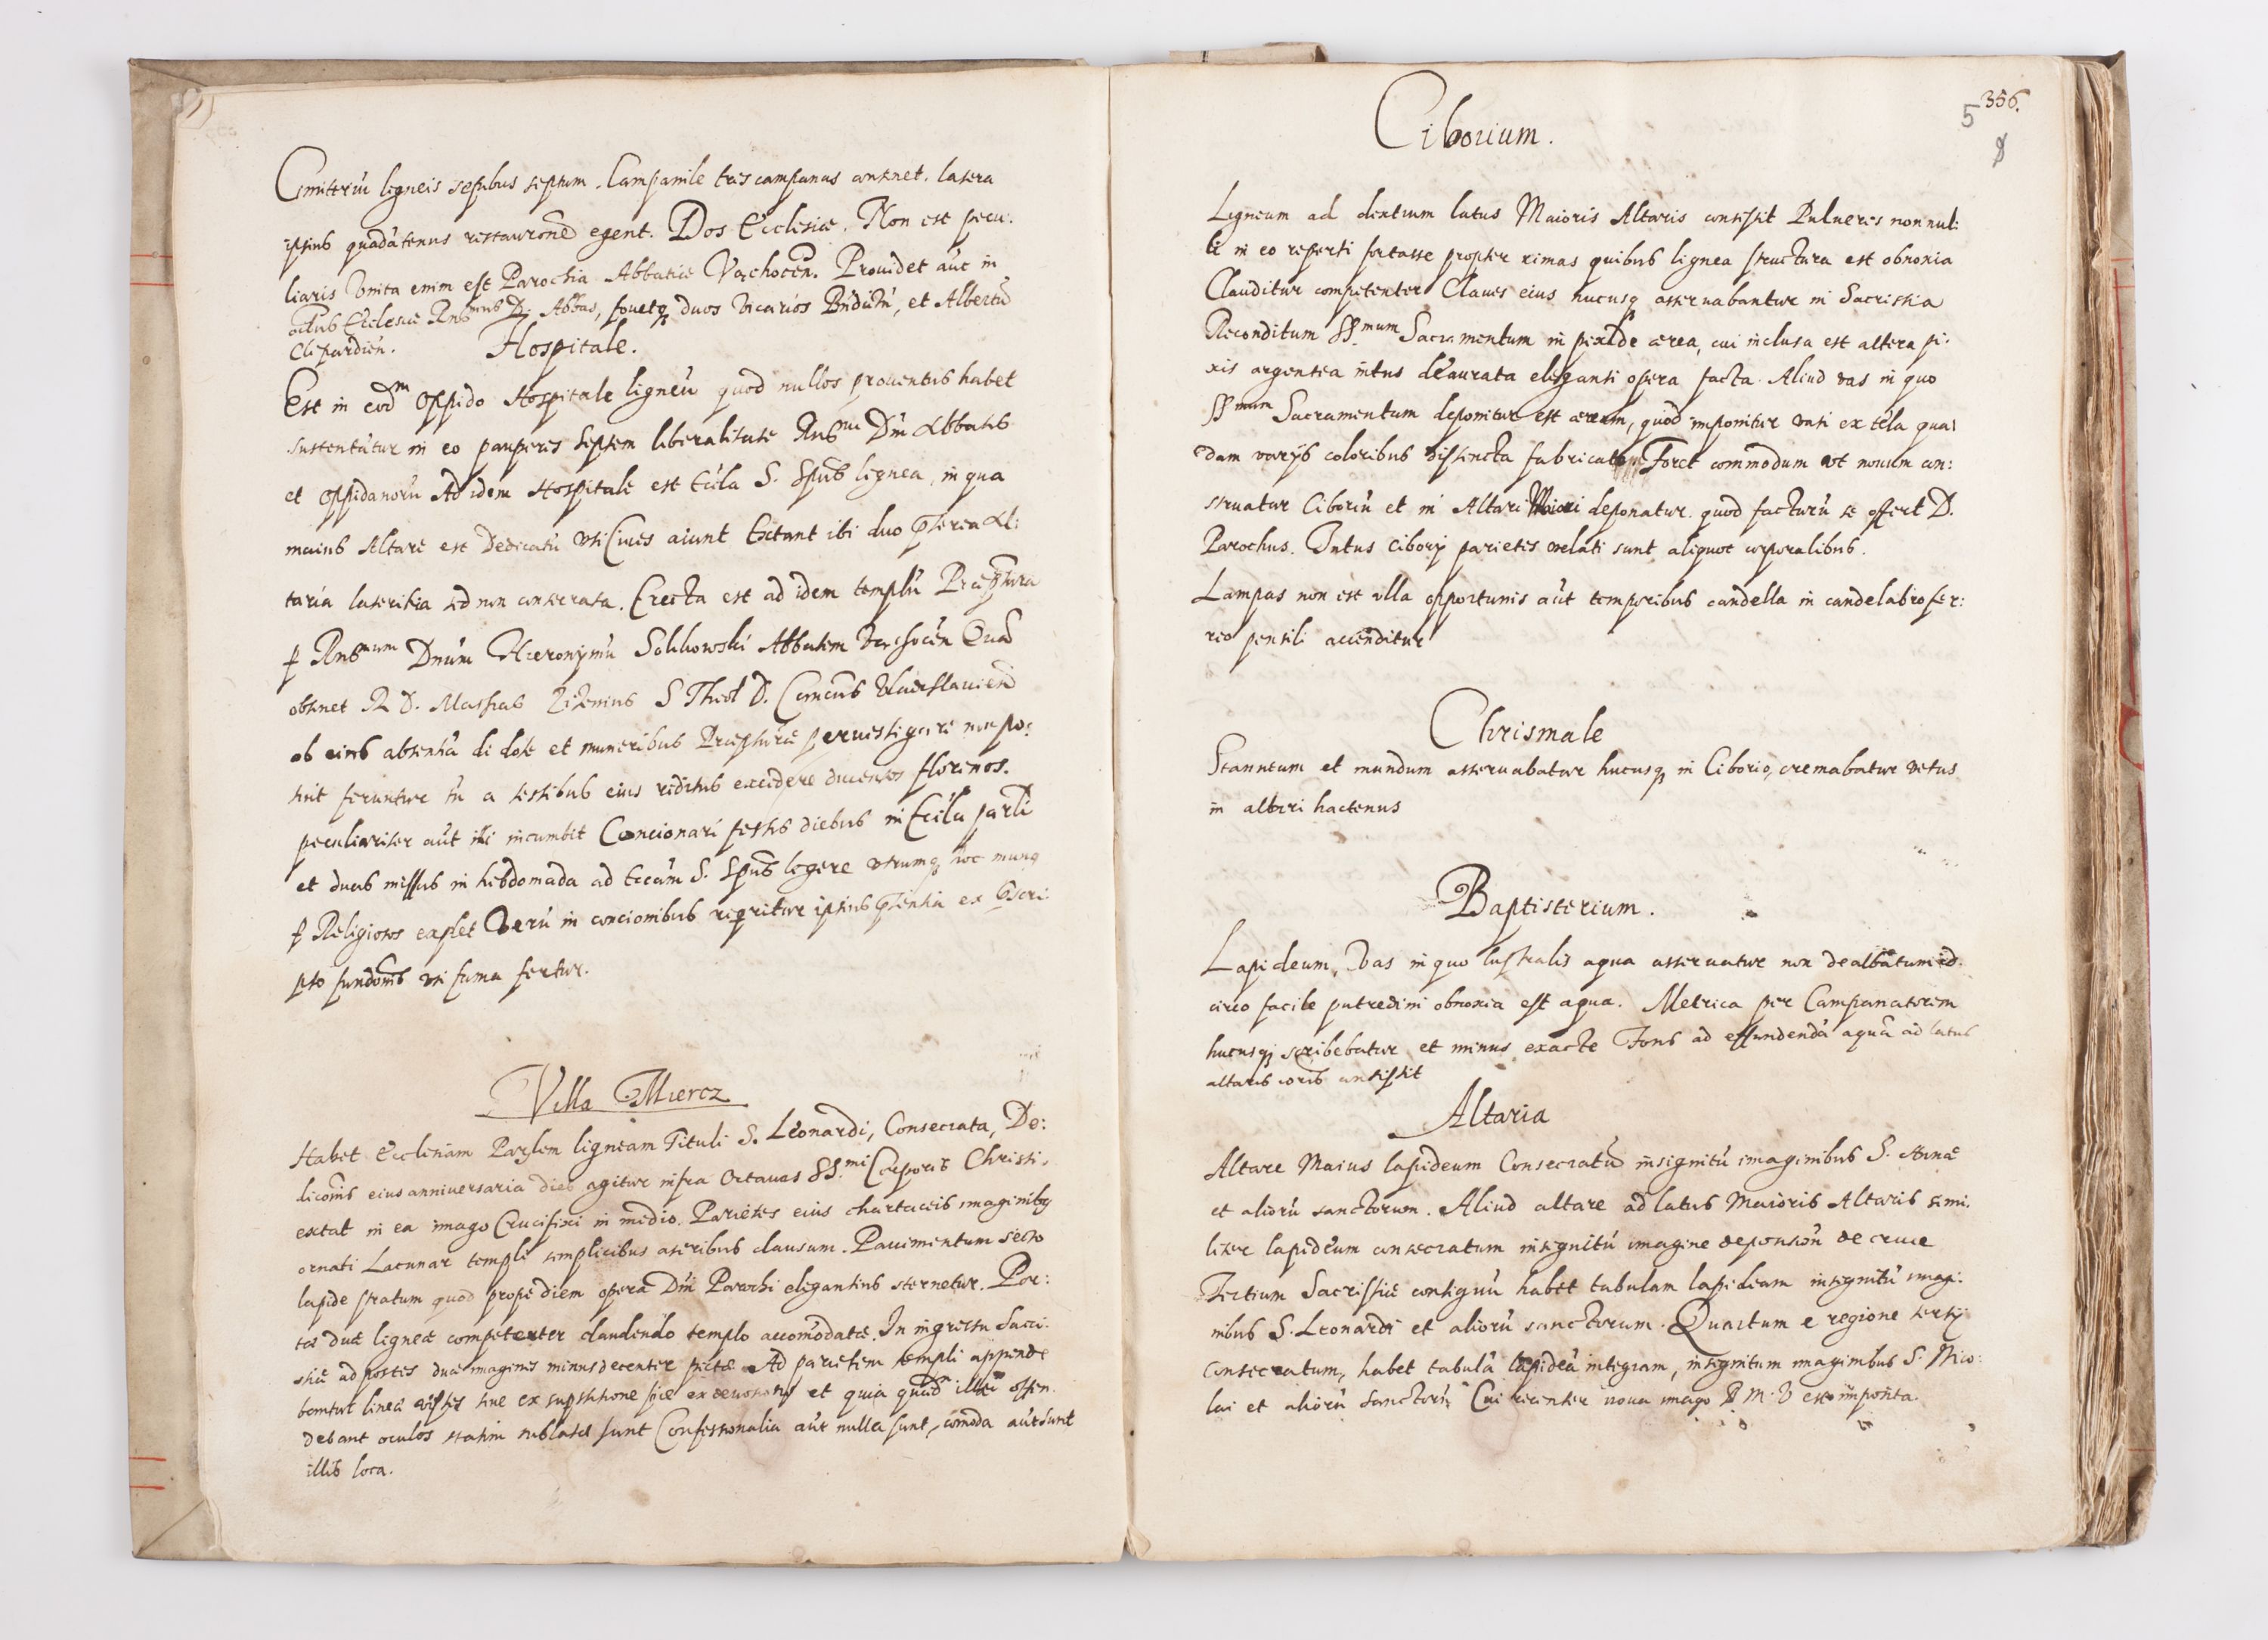 Cimitteriũ ligneis sepibus septum. Campanile tres campanas continet. latera
ipsius quadãtenus restauronẽ egent. Dos Ecclesiæ. Non est pecu:
liaris Vnita enim est Parochia Abbatiæ Vachocen̄. Prouidet aũt in
Rnd̃us D. Abbas, fouetq duos Vicarios et Albertũ
Hospitale.
Est in eod̃m Oppido Hospitale ligneũ quod nullos prouentus habet
sustentãtur in eo pauperes septem liberalitate Rndmi Dñi Abbatis
et Oppidanorũ Ad idem Hospitale est Eccla S. Spũs lignea, in qua
maius Altare est Dedicatũ vti Ciues aiunt Extant ibi duo pterea Al:
taria lateritia sed non consecrata. Erecta est ad idem templũ Præptura
p Rndmum Dnũm Hieronymũ Abbatem Vachocen̄ Quã
obtinet R D. Mathias S Theol D. Vladislauien̄
ob eius absentiã de dote et muneribus Præpturæ peruestigare non po:
tuit feruntur tñ a testibus eius reditus excedere ducentos florenos.
peculiariter aũt illi incumbit Concionari festis diebus in Eccla parli
et duas missas in hebdomada ad Eccam S. Spũs legere vtrumq hoc munq
p Religiosos explet Verũ in concionibus reqritur ipsius pntia ex
pto fundoñis vti fama fertur.
Villa Mircz
Habet Ecclesiam Parlem ligneam Tituli S. Leonardi, Consecrata, De:
dicoñis eius anniuersaria dies agitur infra Octauas SS.mi Corporis Christi.
extat in ea imago Crucifixi in medio. Parietes eius chartaceis imaginibq
ornati Lacunar templi simplicibus asseribus clausum. Pauimentum secto
lapide stratum quod propediem opera Dñi Parochi elegantius sternetur. Por:
tæ duæ ligneæ competenter claudendo templo accom̃odatæ. In ingressu Sacri:
stiæ ad postes duæ imagines minus decenter pictæ Ad parietem templi appende
bantur lineæ vestes siue ex supstitione siue ex deuotione et quia quod illæ offen
debant oculos statim sublatæ sunt Confessionalia aũt nulla sunt, com̃oda aũt sunt
illis loca.
356.
5
Ciborium.
Ligneum ad dextrum latus Maioris Altaris consistit Pulueres nonnul:
li in eo reperti fortasse propter rimas quibus lignea structura est obnoxia
Clauditur competenter Claues eius hucusq asseruabantur in Sacristia
Reconditum SS.mum Sacramentum in pixide ærea, cui inclusa est altera pi:
xis argentea intus deaurata eleganti opera facta. Aliud vas in quo
SSmum Sacramentum deponitur est æreum, quod imponitur vasi ex tela qua:
dam varijs coloribus distincta fabricato Foret commodum vt nouum con:
struatur Ciboriũ et in Altari Maiori deponatur quod facturũ se offert D.
Parochus. Intus Ciborij parietes velati sunt aliquot corporalibus.
Lampas non est vlla opportunis aũt temporibus candella in candelabro fer:
reo pensili accenditur
Chrismale
Stanneum et mundum asseruabatur hucusq in Ciborio, cremabatur vetus
in altari hactenus
Baptisterium.
Lapideum, Vas in quo lustralis aqua asseruatur non dealbatum id:
circo facile putredini obnoxia est aqua. Metrica per Campanatorem
hucusq scribebatur et minus exacte Fons ad effundendã aquã ad latus
altaris consistit
Altaria
Altare Maius lapideum Consecratũ insignitũ imaginibus S. Annæ
et aliorũ sanctorum. Aliud altare ad latus Maioris Altaris simi:
liter lapideum consecratum insignitũ imagine deposition̄ de cruce
Tertium Sacristiæ contiguũ habet tabulam lapideam insignitũ imagi:
nibus S. Leonardi et aliorũ sanctorum. Quartum e regione tertij
Consecratum, habet tabulã lapideã integram, insignitum imaginibus S. Nico:
lai et aliorũ Sanctorũ Cui recenter noua imago B M V est imposita.